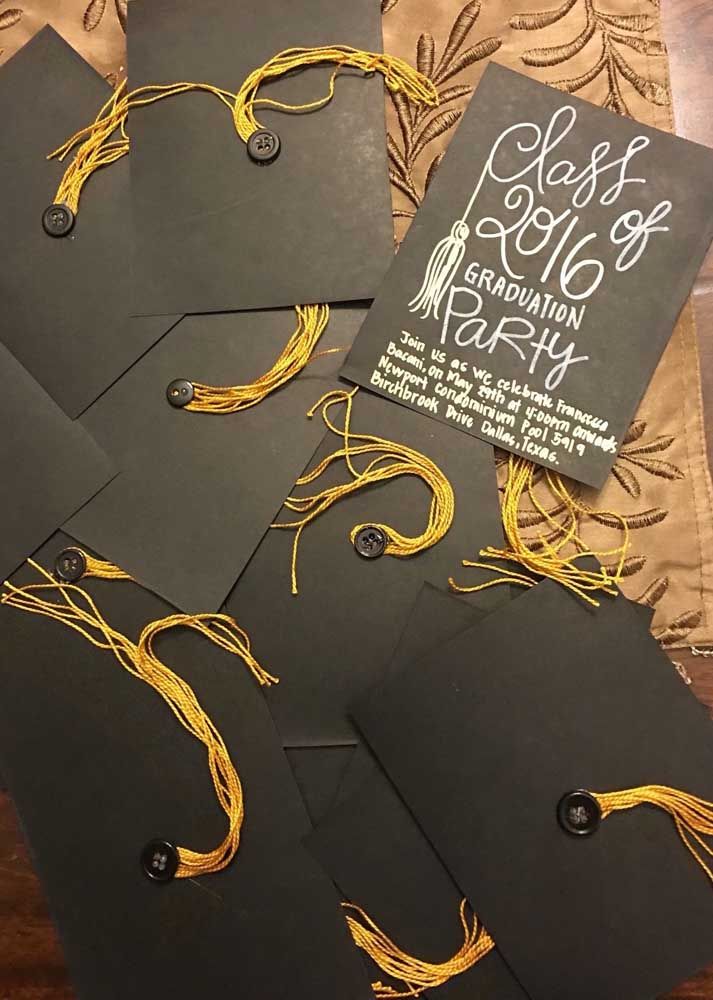 Class
of
2016
GRADUATION
PaRty
Join us as we celebrate Francesca
Bacani, on May 29th at 4:00pm onwards
Newport Condominium Pool 5919
Birchbrook Drive Dallas, Texas.